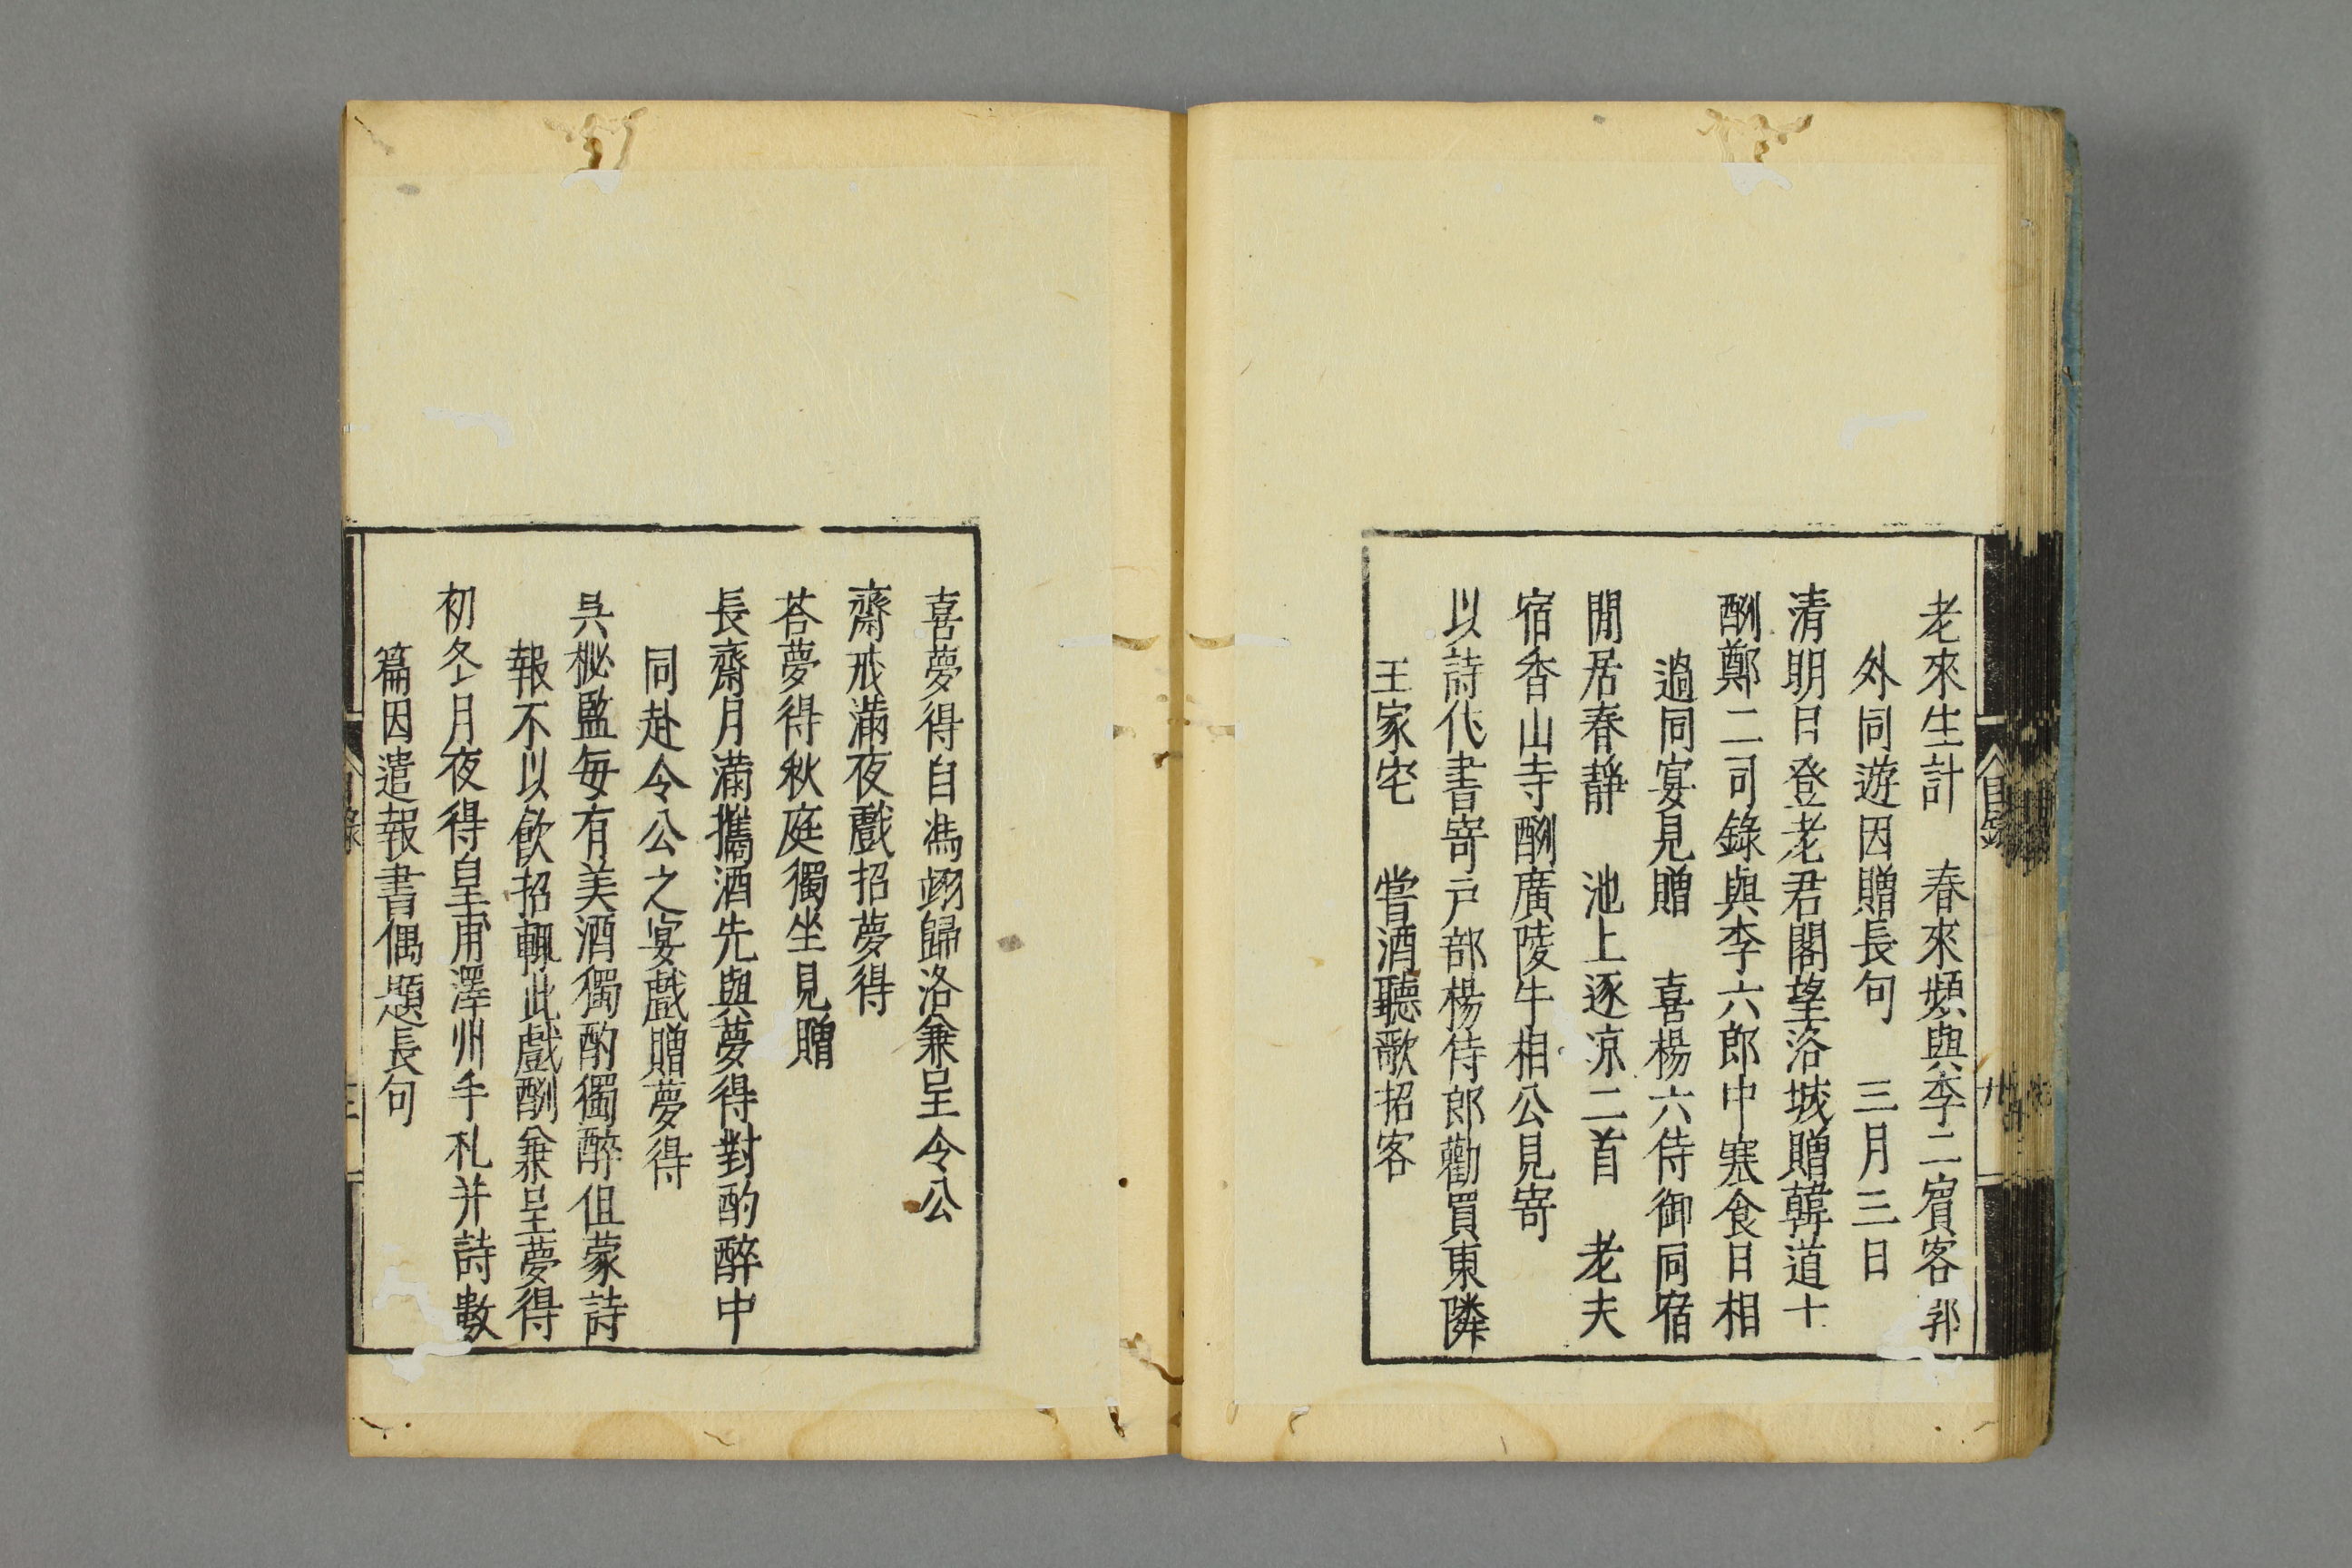 老來生計　春來頻與李二賔客郭
外同遊因贈長句　三月三日
清明日登老君閣望洛城贈韓道十
酬鄭二司錄與李六郎中寒食日相
過同宴見贈　喜楊六侍御同宿
閒居春靜　池上逐凉二首　老夫
宿香山寺酬廣陵牛相公見寄
以詩代書寄户部楊侍郎勸買東隣
王家宅　甞酒聽歌招客
喜夢得自馮翊歸洛兼呈令公
齋戒滿夜戲招夢得
荅夢得秋庭獨坐見贈
長齋月滿攜酒先與夢得對酌醉中
同赴令公之宴戲贈夢得
吳秘監每有美酒獨酌獨醉但蒙詩
報不以飲招輒此戲酬兼呈夢得
初冬月夜得皇甫澤州手札并詩數
篇因遣報書偶題長句